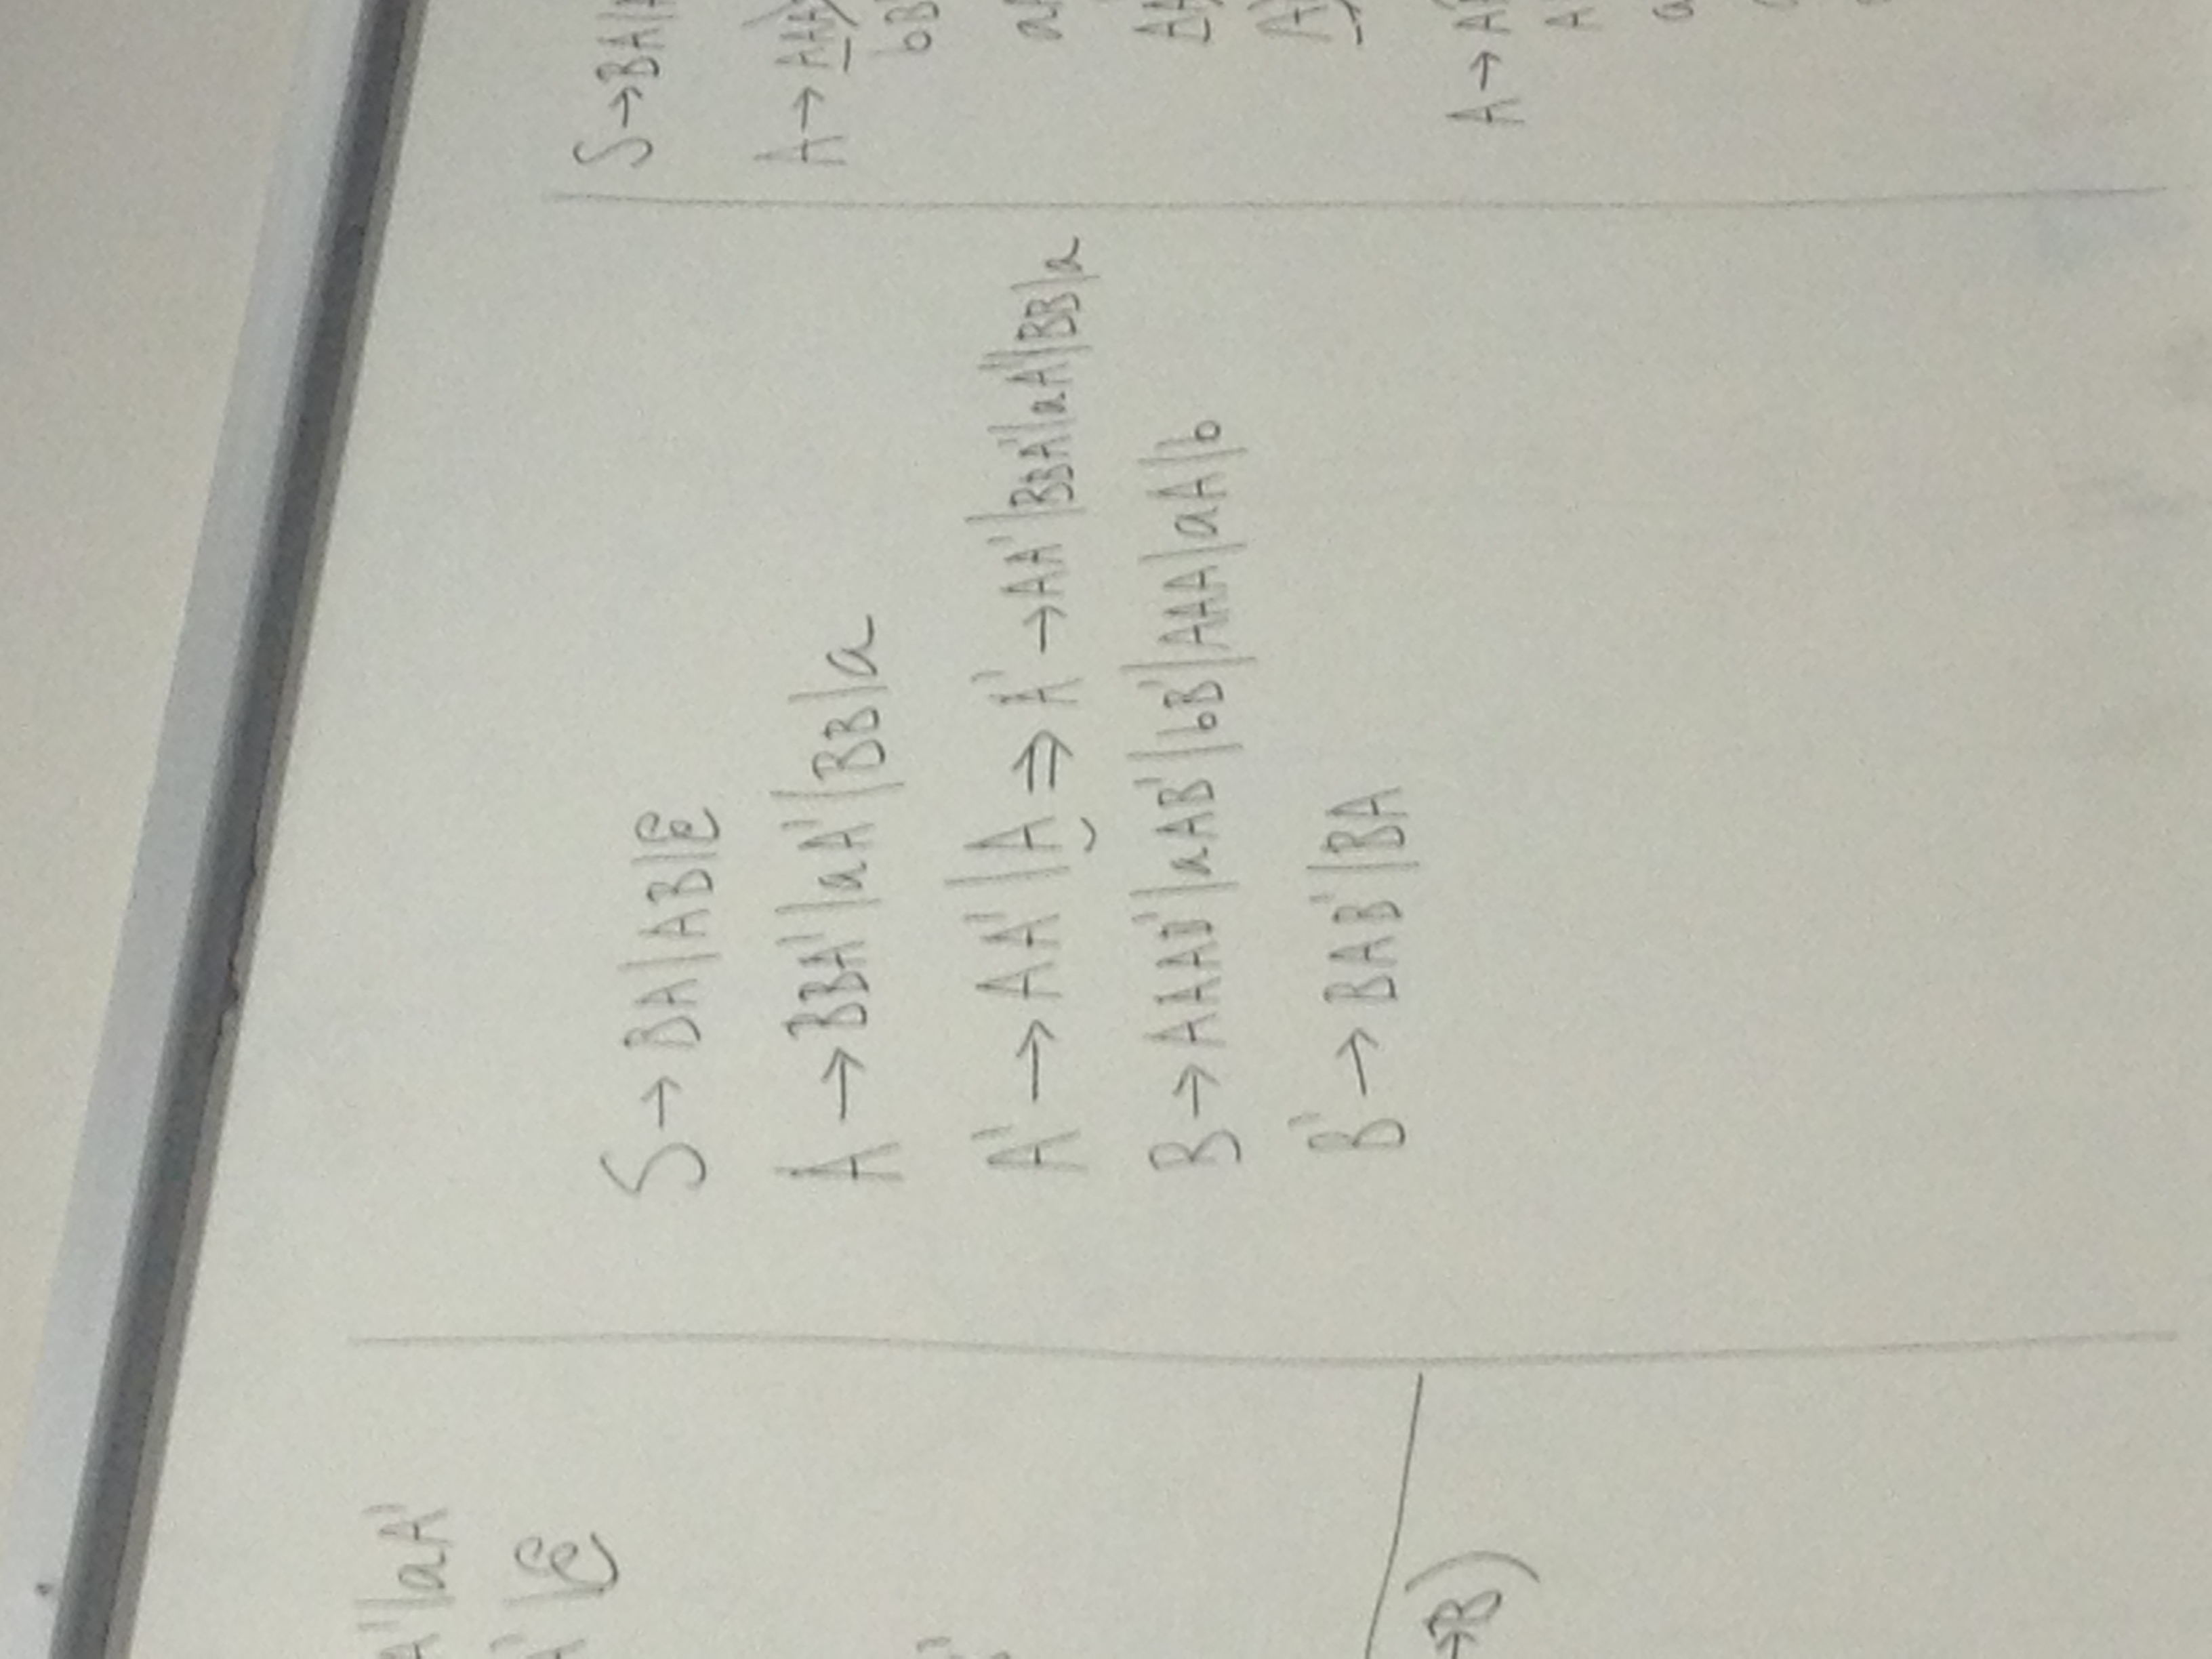 A'|aA'
A'|ε
S → BA|AB|ε
A → BBA'|aA'|BB|a
A' → AA'|A ⇒ A' → AA'|BBA'|aA'|BB|a
B → AAAB'|aAB'|bB'|AAA|aA|b
B' → BAB'|BA
→B)
S → BA|
A → AAA
bB
aA
AA
A → A
A
a